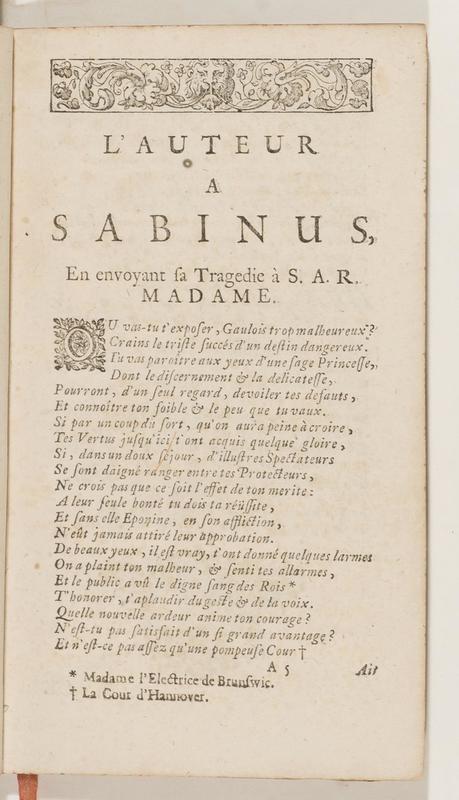 L'AUTEUR
A
SABINUS,
En envoyant ſa Tragedie à S. A. R.
MADAME.
OU vas-tu t'expoſer, Gaulois trop malheureux?
Crains le triſte ſuccés d'un deſtin dangereux.
Tu vas paroitre aux yeux d'une ſage Princeſſe,
Dont le diſcernement & la delicateſſe,
Pourront, d'un ſeul regard, devoiler tes defauts,
Et connoître ton foible & le peu que tu vaux.
Si par un coup dü ſort, qu'on aura peine à croire,
Tes Vertus juſqu'ici t'ont acquis quelque gloire,
Si, dans un doux ſéjour, d'illuſtres Spectateurs
Se ſont daigné ranger entre tes Protecteurs,
Ne crois pas que ce ſoit l'effet de ton merite:
A leur ſeule bonté tu dois ta réüſſite,
Et ſans elle Eponine, en ſon affliction,
N'eût jamais attiré leur approbation.
De beaux yeux, il eſt vray, t'ont donné quelques larmes
On a plaint ton malheur, & ſenti tes allarmes,
Et le public a vû le digne ſang des Rois *
T'honorer, t'aplaudir du geſte & de la voix.
Quelle nouvelle ardeur anime ton courage?
N'eſt-tu pas ſatisfait d'un ſi grand avantage?
Et n'eſt-ce pas aſſez qu'une pompeuſe Cour †
A 5 Ait
* Madame l'Electrice de Brunſwic.
† La Cour d'Hannover.